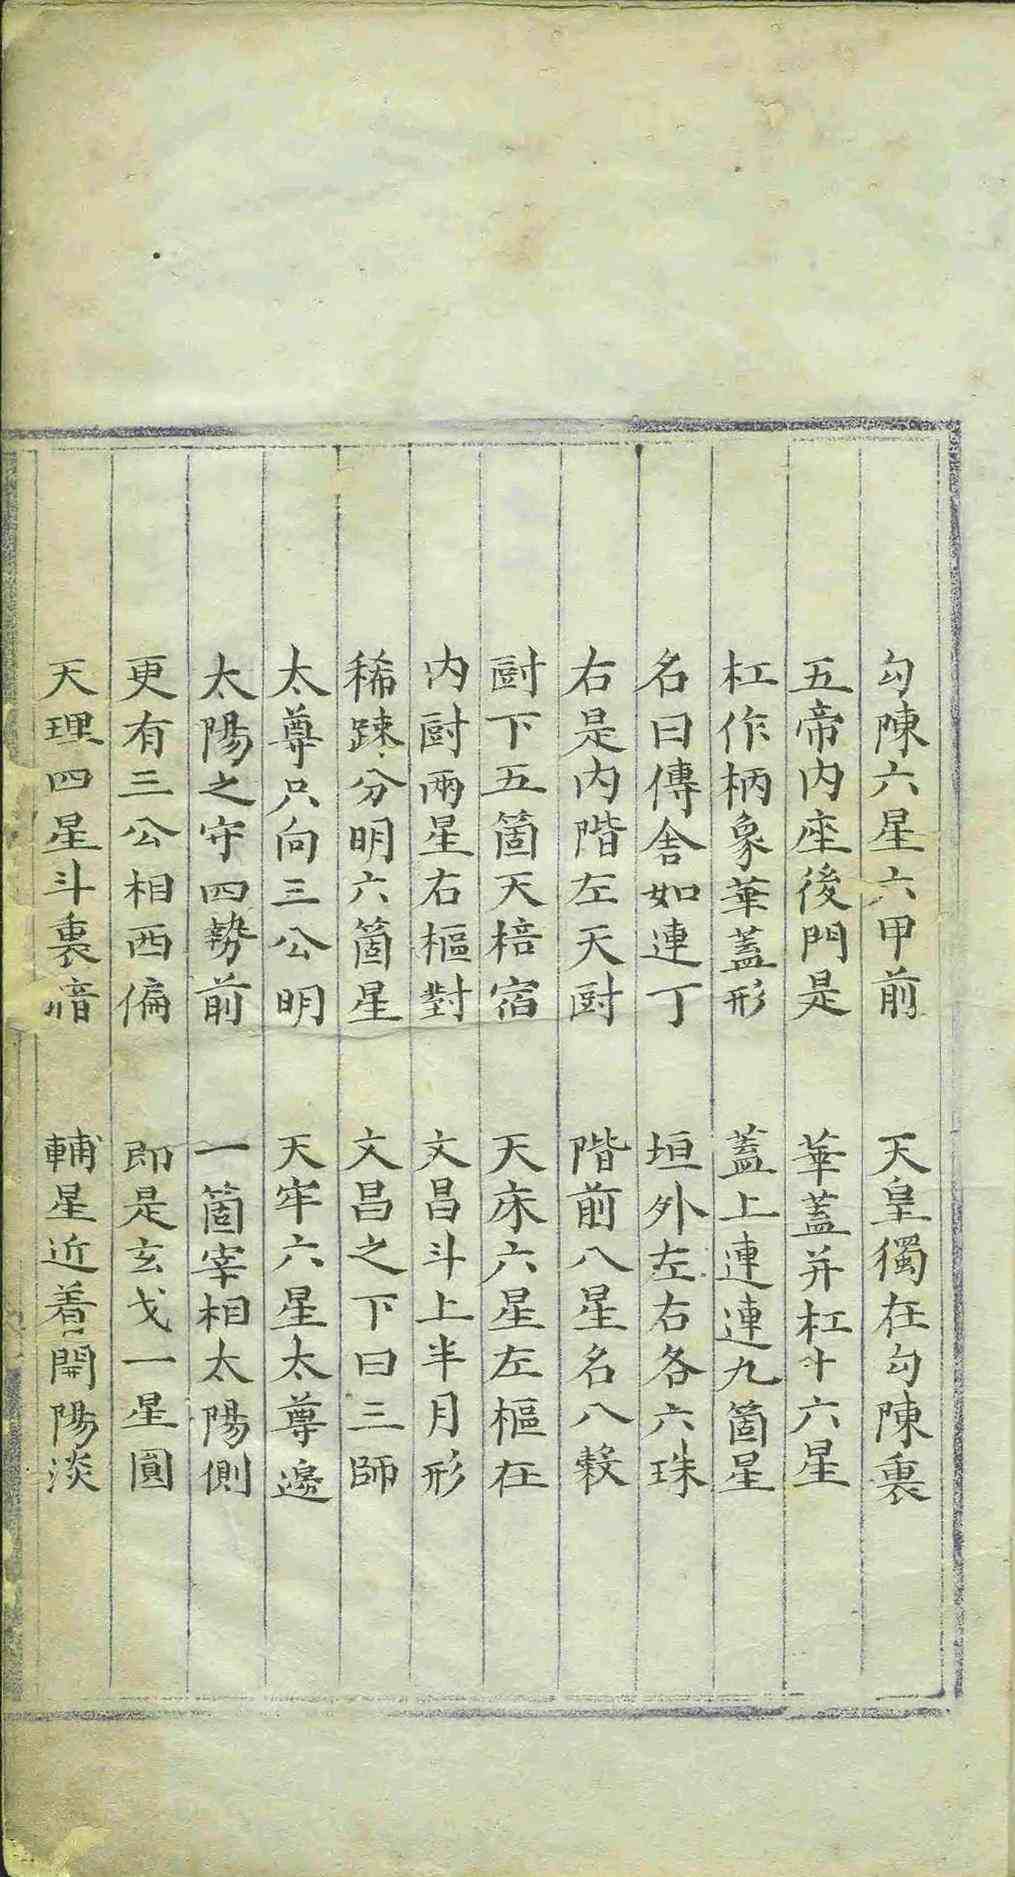 勾陳六星六甲前　天皇獨在勾陳裏
五帝內座後門是　華蓋并杠十六星
杠作柄象華蓋形　蓋上連連九箇星
名曰傳舍如連丁　垣外左右各六珠
右是內階左天廚　階前八星名八糓
廚下五箇天棓宿　天床六星左樞在
內廚兩星右樞對　文昌斗上半月形
稀踈分明六箇星　文昌之下曰三師
太尊只向三公明　天牢六星太尊邊
太陽之守四勢前　一箇宰相太陽側
更有三公相西偏　即是玄戈一星圓
天理四星斗裏暗　輔星近着開陽淡